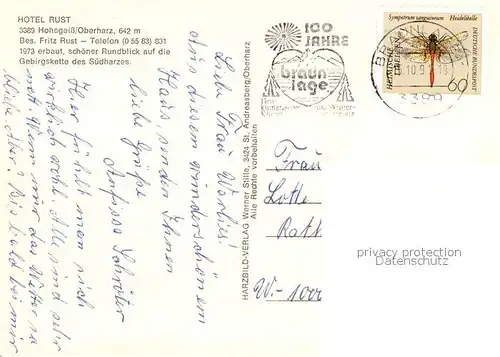 HOTEL RUST
3389 Hohegeiß/Oberharz, 642 m
Bes. Fritz Rust – Telefon (0 55 83) 831
1973 erbaut, schöner Rundblick auf die
Gebirgskette des Südharzes.
Liebe Frau
Aus diesem wunderschönem
Haus, senden Ihnen
liebe Grüße
Schröter
Hier fühlt man sich
wirklich wohl. Alle sind sehr
nett. Wenn nur das Wetter so
bliebe. Aber? Bis bald bei mir
HARZBILD-VERLAG Werner Stille, 3424 St. Andreasberg/Oberharz
Alle Rechte vorbehalten
100
JAHRE
braun
lage
BRAUNLAGE
10.9
3389
Sympetrum sanguineum Heidelibelle
DEUTSCHE BUNDESPOST
60
Frau
Lotte
Rath
W.- 1000
privacy protection
Datenschutz